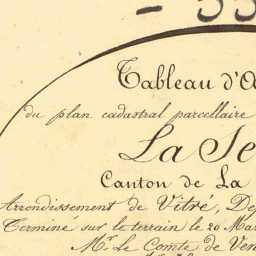 Tableau d'A
du plan cadastral parcellaire
La Se
Canton de La
Arrondissement de Vitré, De
Terminé sur le terrain le 20 Mar
Mr. Le Comte de Ven